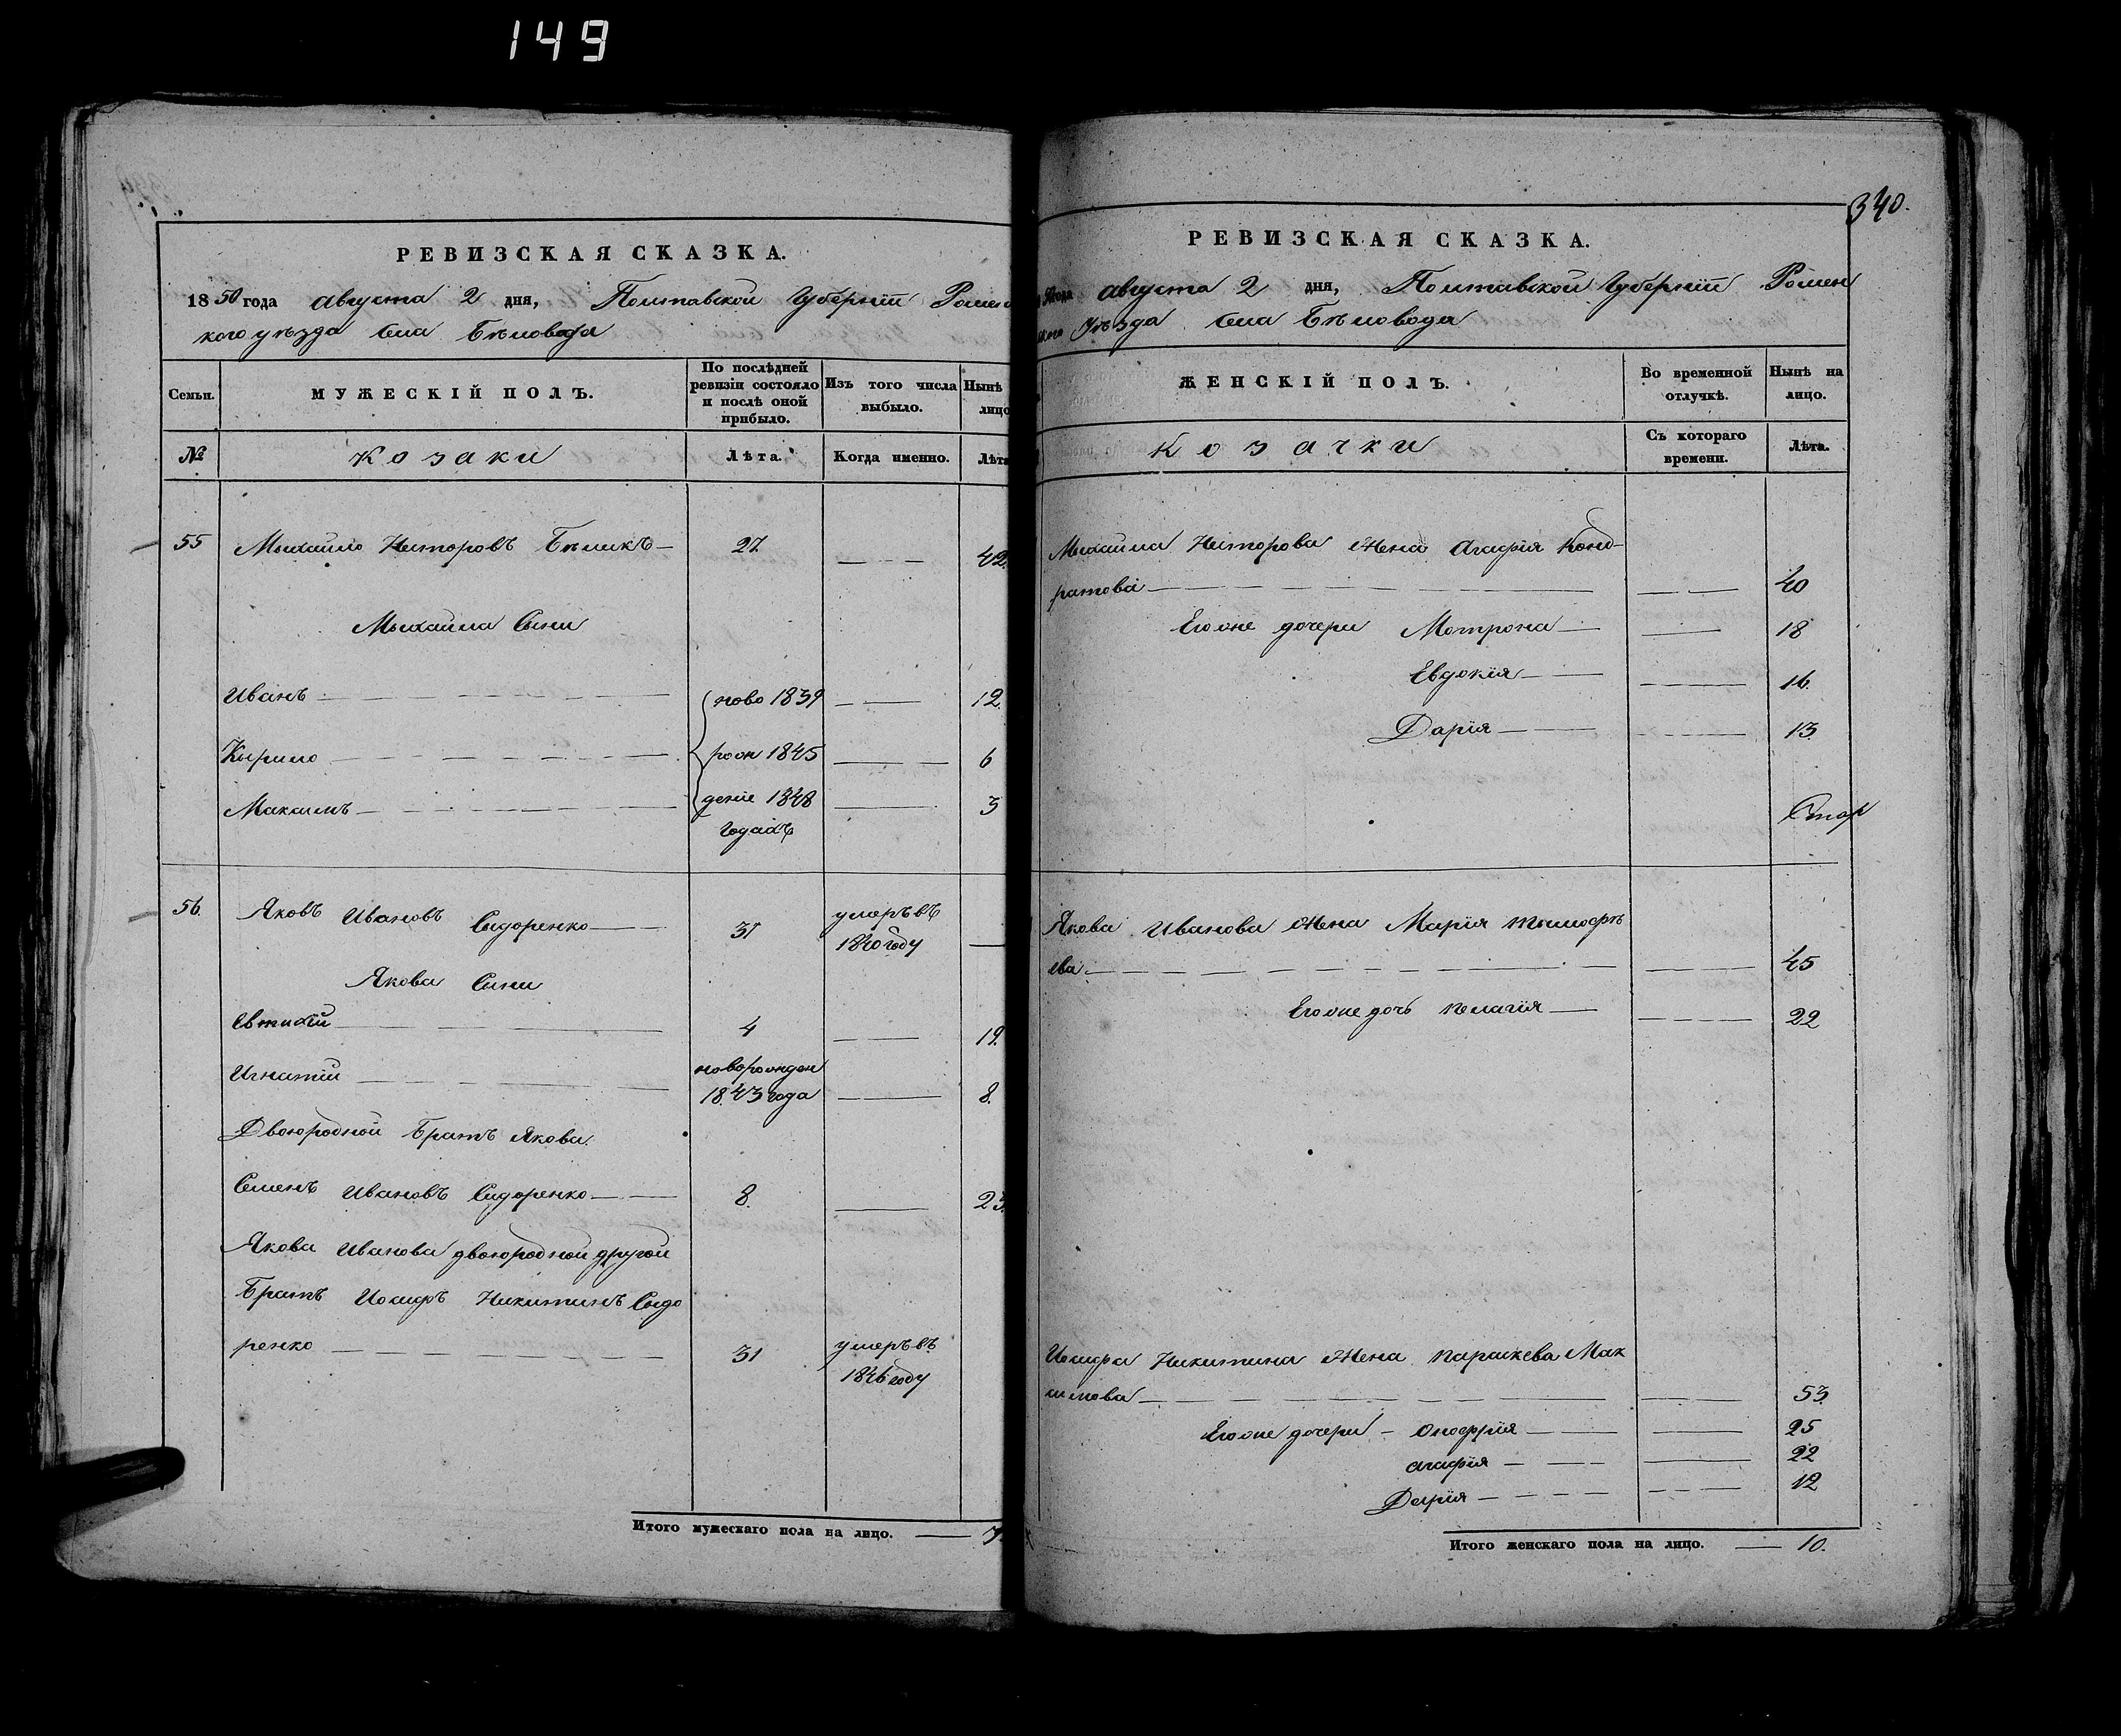 149
РЕВИЗСКАЯ СКАЗКА.
1850 года августа 2 дня, Полтавской Губерніи Ромен
кого уѣзда села Бѣловода
Семьи.
МУЖЕСКІЙ ПОЛЪ.
По послѣдней ревизіи состояло и послѣ оной прибыло.
Изъ того числа выбыло.
Нынѣ
лицо
№
Козаки
Лѣта.
Когда именно.
Лѣта
55 Мыхайло Несторовъ Бѣликъ 27 42.
Мыхайла Сыни
Иванъ ново 1839 12.
Кырило рож 1845 6
Максимъ деніе 1848 3
годахъ
56. Яковъ Ивановъ Сыдоренко 31 умеръ въ
1840 году
Якова Сини
Евтихій 4 19.
Игнатій новорожден
1843 года 8.
Двоюродной Братъ Якова
Семенъ Ивановъ Сидоренко 8. 23.
Якова Иванова двоюродной другой
Братъ Иосифъ Никитинъ Сыдо
ренко 31 умеръ въ
1846 году
Итого мужескаго пола на лицо. 7.
340.
РЕВИЗСКАЯ СКАЗКА.
года августа 2 дня, Полтавской Губерніи Ромен
кого Уѣзда села Бѣловода
ЖЕНСКІЙ ПОЛЪ.
Во временной отлучкѣ.
Нынѣ на лицо.
Козачки
Съ котораго времени.
Лѣта.
Мыхайла Несторова Жена Агафія Конд-
ратова 40
Егоже дочери Мотрона 18
Евдокія 16.
Дарія 13.
Якова Иванова Жена Марія Тымофѣ
ева 45
Егоже дочь Пелагія 22
Иосифа Никитина Жена Параскева Мак
симова 53.
Егоже дочери - Онофрія 25
Агафія 22
Дарія 12
Итого женскаго пола на лицо. 10.